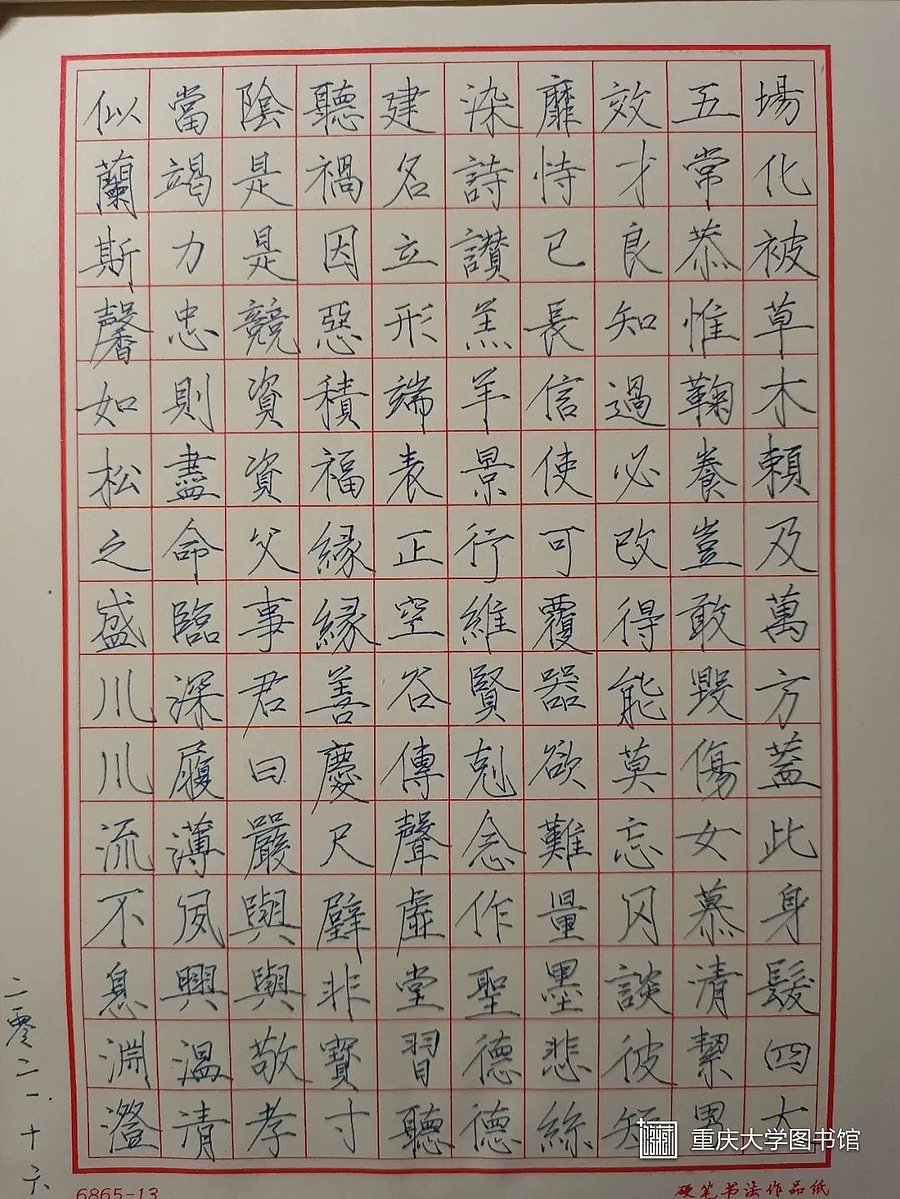 場化被草木賴及萬方蓋此身髮四大
五常恭惟鞠養豈敢毀傷女慕清絜男
效才良知過必改得能莫忘罔談彼短
靡恃己長信使可覆器欲難量墨悲絲
染詩讚羔羊景行維賢剋念作聖德德
建名立形端表正空谷傳聲虛堂習聽
聽禍因惡積福緣緣善慶尺璧非寶寸
陰是是競資資父事君曰嚴與與敬孝
當竭力忠則盡命臨深履薄夙興溫清
似蘭斯馨如松之盛川川流不息淵澄
二零二一.十六
6865-13
硬笔书法作品纸
重庆大学图书馆